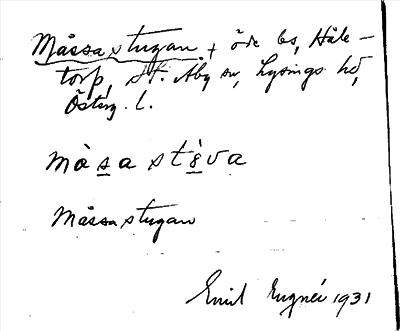 Mässastugan + öde bs, Håle-
torp, St. Åby sn, Lysings hd,
Östérg. l.
mȁsastèva
Mässastugan
Emil Eugnér 1931